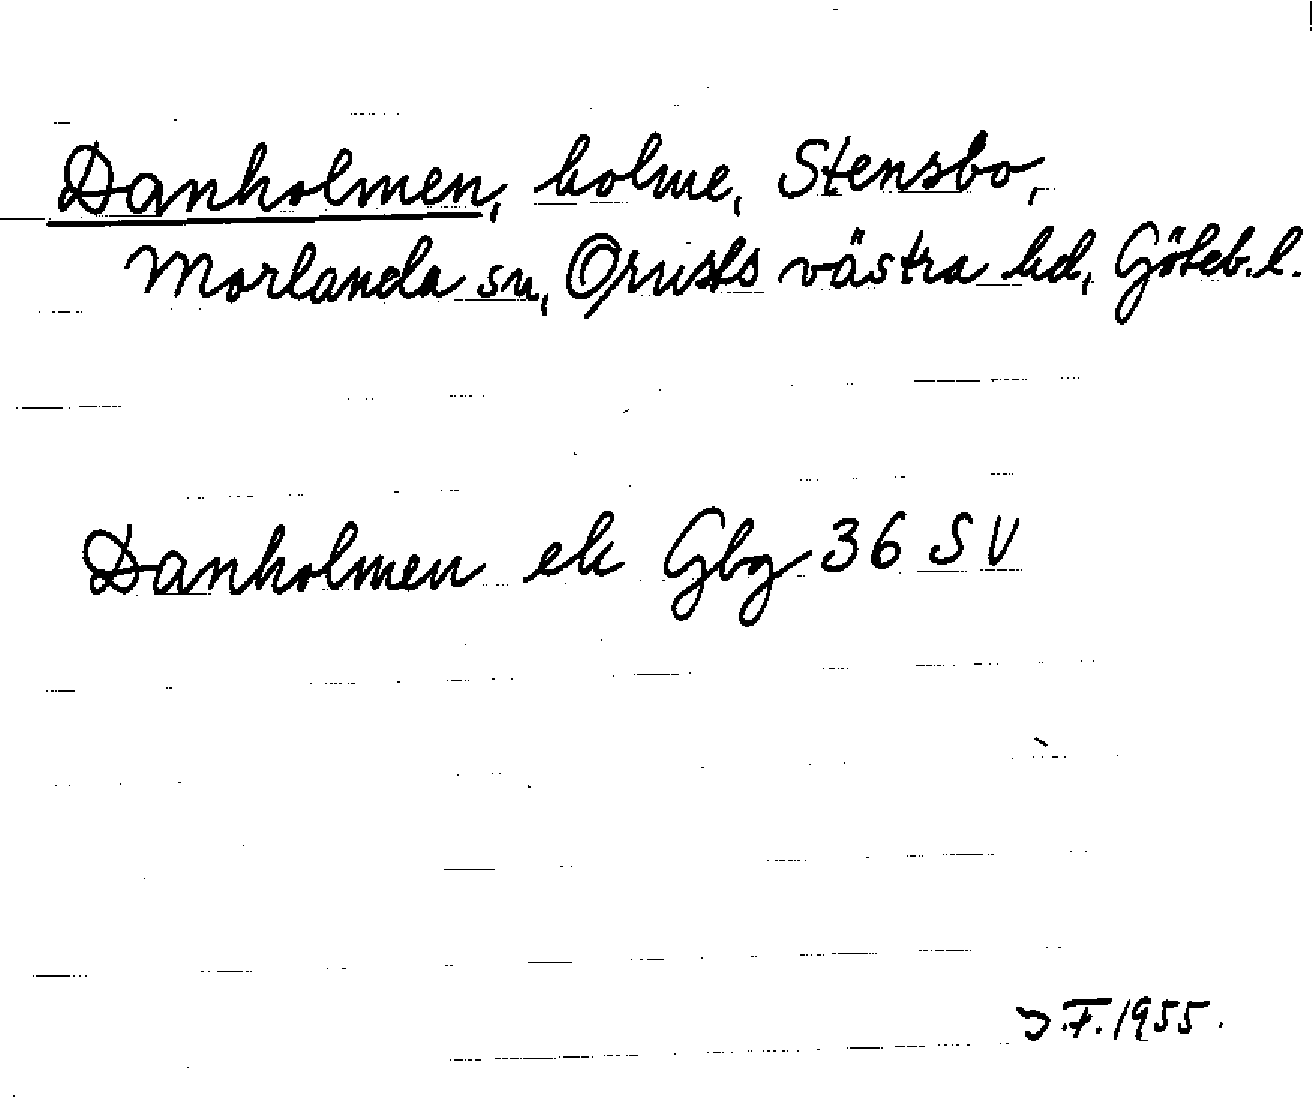 Danholmen, holme, Stensbo,
Morlanda sn, Orusts västra hd, Göteb. l.
Danholmen ek Gbg 36 SV
F. 1955.